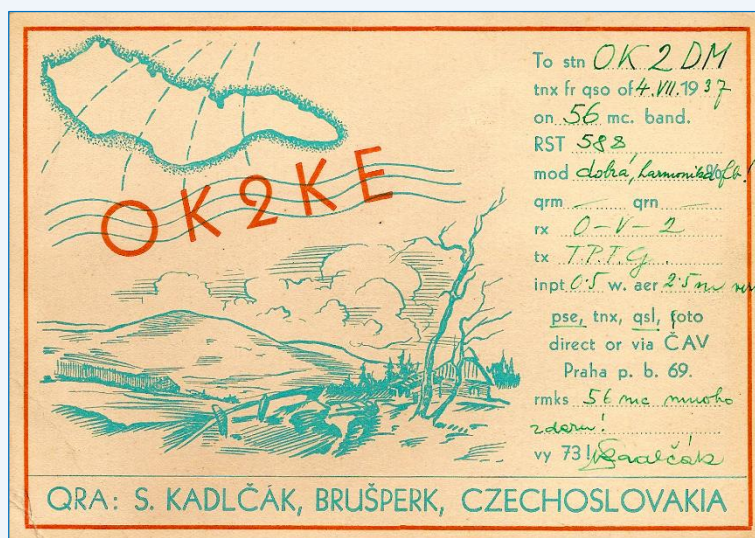 OK2KE
To stn OK2DM
tnx fr qso of 4.VII.1937
on 56 mc. band.
RST 588
mod dobrá, harmonika fb!
qrm — qrn —
rx 0-V-2
tx T.P.T.G.
inpt 0.5 w. aer 2.5 m
pse, tnx, qsl, foto
direct or via ČAV
Praha p. b. 69.
rmks 56 mc mnoho
zdaru!
vy 73! Kadlčák
QRA: S. KADLČÁK, BRUŠPERK, CZECHOSLOVAKIA